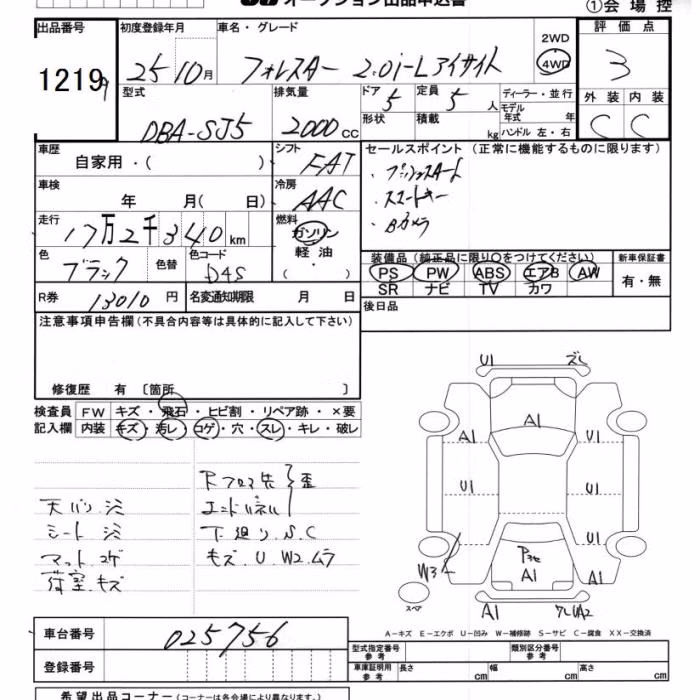 オークション出品申込書
①会場控
出品番号 初度登録年月 車名・グレード 2WD 評価点
12199 25 10月 フォレスター 2.0i-L アイサイト 4WD 3
型式 排気量 ドア 5 定員 5人 ディーラー・並行 外装 内装
モデル年式 年
DBA-SJ5 2000cc 形状 積載 kg ハンドル 左・右 C C
車歴 自家用・( ) シフト FAT セールスポイント (正常に機能するものに限ります)
・プッシュスタート
車検 年 月( 日) 冷房 AAC ・スマートキー
・Bカメラ
走行 17万2千340km 燃料 ガソリン
軽油
・( )
色 ブラック 色替 色コード D4S
装備品 (純正品に限り○をつけてください) 新車保証書
PS PW ABS エアB AW 有・無
SR ナビ TV カワ
R券 13010円 名変通知期限 月 日 後日品
注意事項申告欄 (不具合内容等は具体的に記入して下さい)
修復歴 有 〔箇所 〕
検査員 FW キズ・飛石・ヒビ割・リペア跡・×要
記入欄 内装 キズ・汚レ・コゲ・穴・スレ・キレ・破レ
Fフロア先 歪
天バリ 汚 エンドパネル
シート 汚 下廻り S.C
マット コゲ キズ.U.W2.ムラ
荷室 キズ
U1 ズレ
A1
A1 U1
U1 U1
U1
W3
A1
スペア
A1 ワレUA2
A-キズ E-エクボ U-凹み W-補修跡 S-サビ C-腐食 XX-交換済
車台番号 025756
型式指定番号 参考 類別区分番号 参考
登録番号 車庫証明用 参考 長さ cm 幅 cm 高さ cm
希望出品コーナー (コーナーは各会場により異なります。)